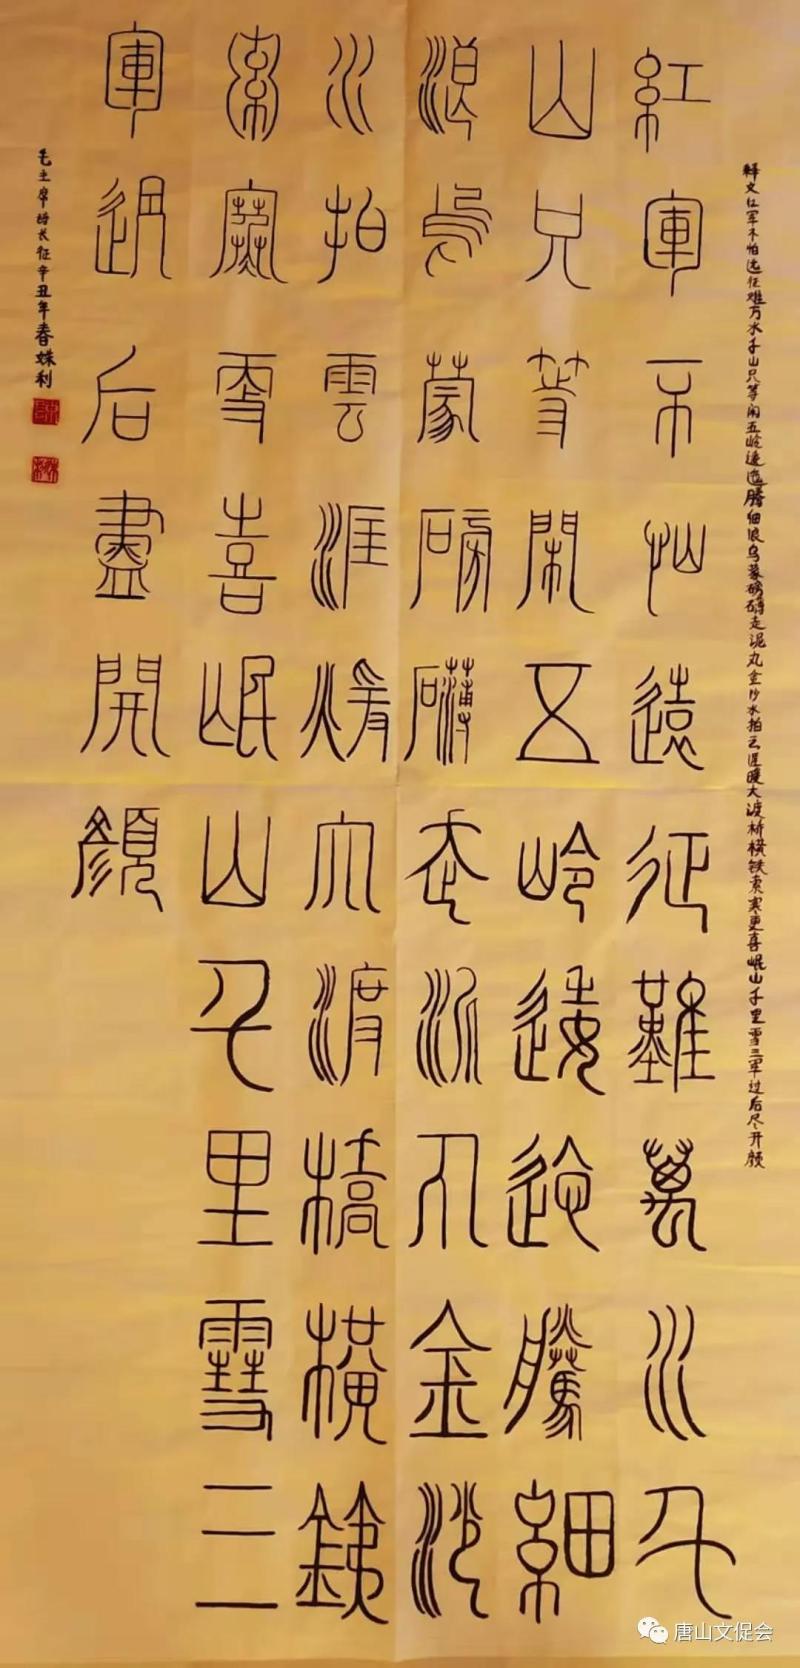 释文红军不怕远征难万水千山只等闲五岭逶迤腾细浪乌蒙磅礴走泥丸金沙水拍云崖暖大渡桥横铁索寒更喜岷山千里雪三军过后尽开颜
紅軍不怕遠征難萬水千
山只等閑五岭逶迤騰細
浪烏蒙磅礴走泥丸金沙
水拍雲涯煖大渡橋橫鐵
索寒更喜岷山千里雪三
軍過后盡開顏
毛主席诗长征辛丑年春姝利
唐山文促会